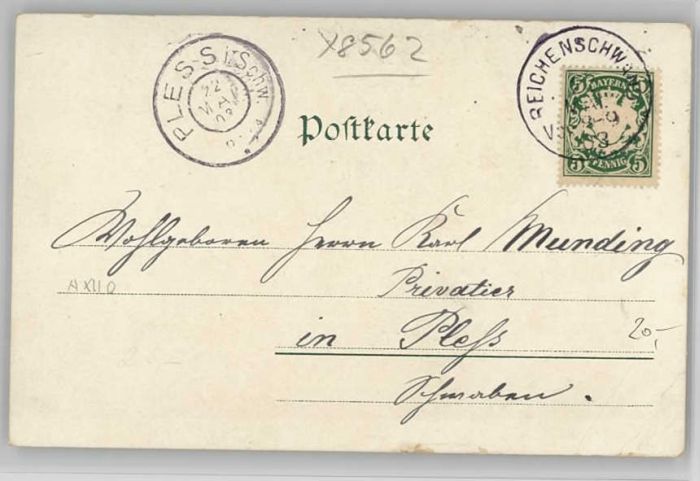 x8562
PLESS i/Schw.
REICHENSCHWAND
5 BAYERN 5
5 PFENNIG 5
Poſtkarte
Wohlgeboren Herrn Karl Munding
Privatier
AXIID
in Pleß
20,-
Schwaben.